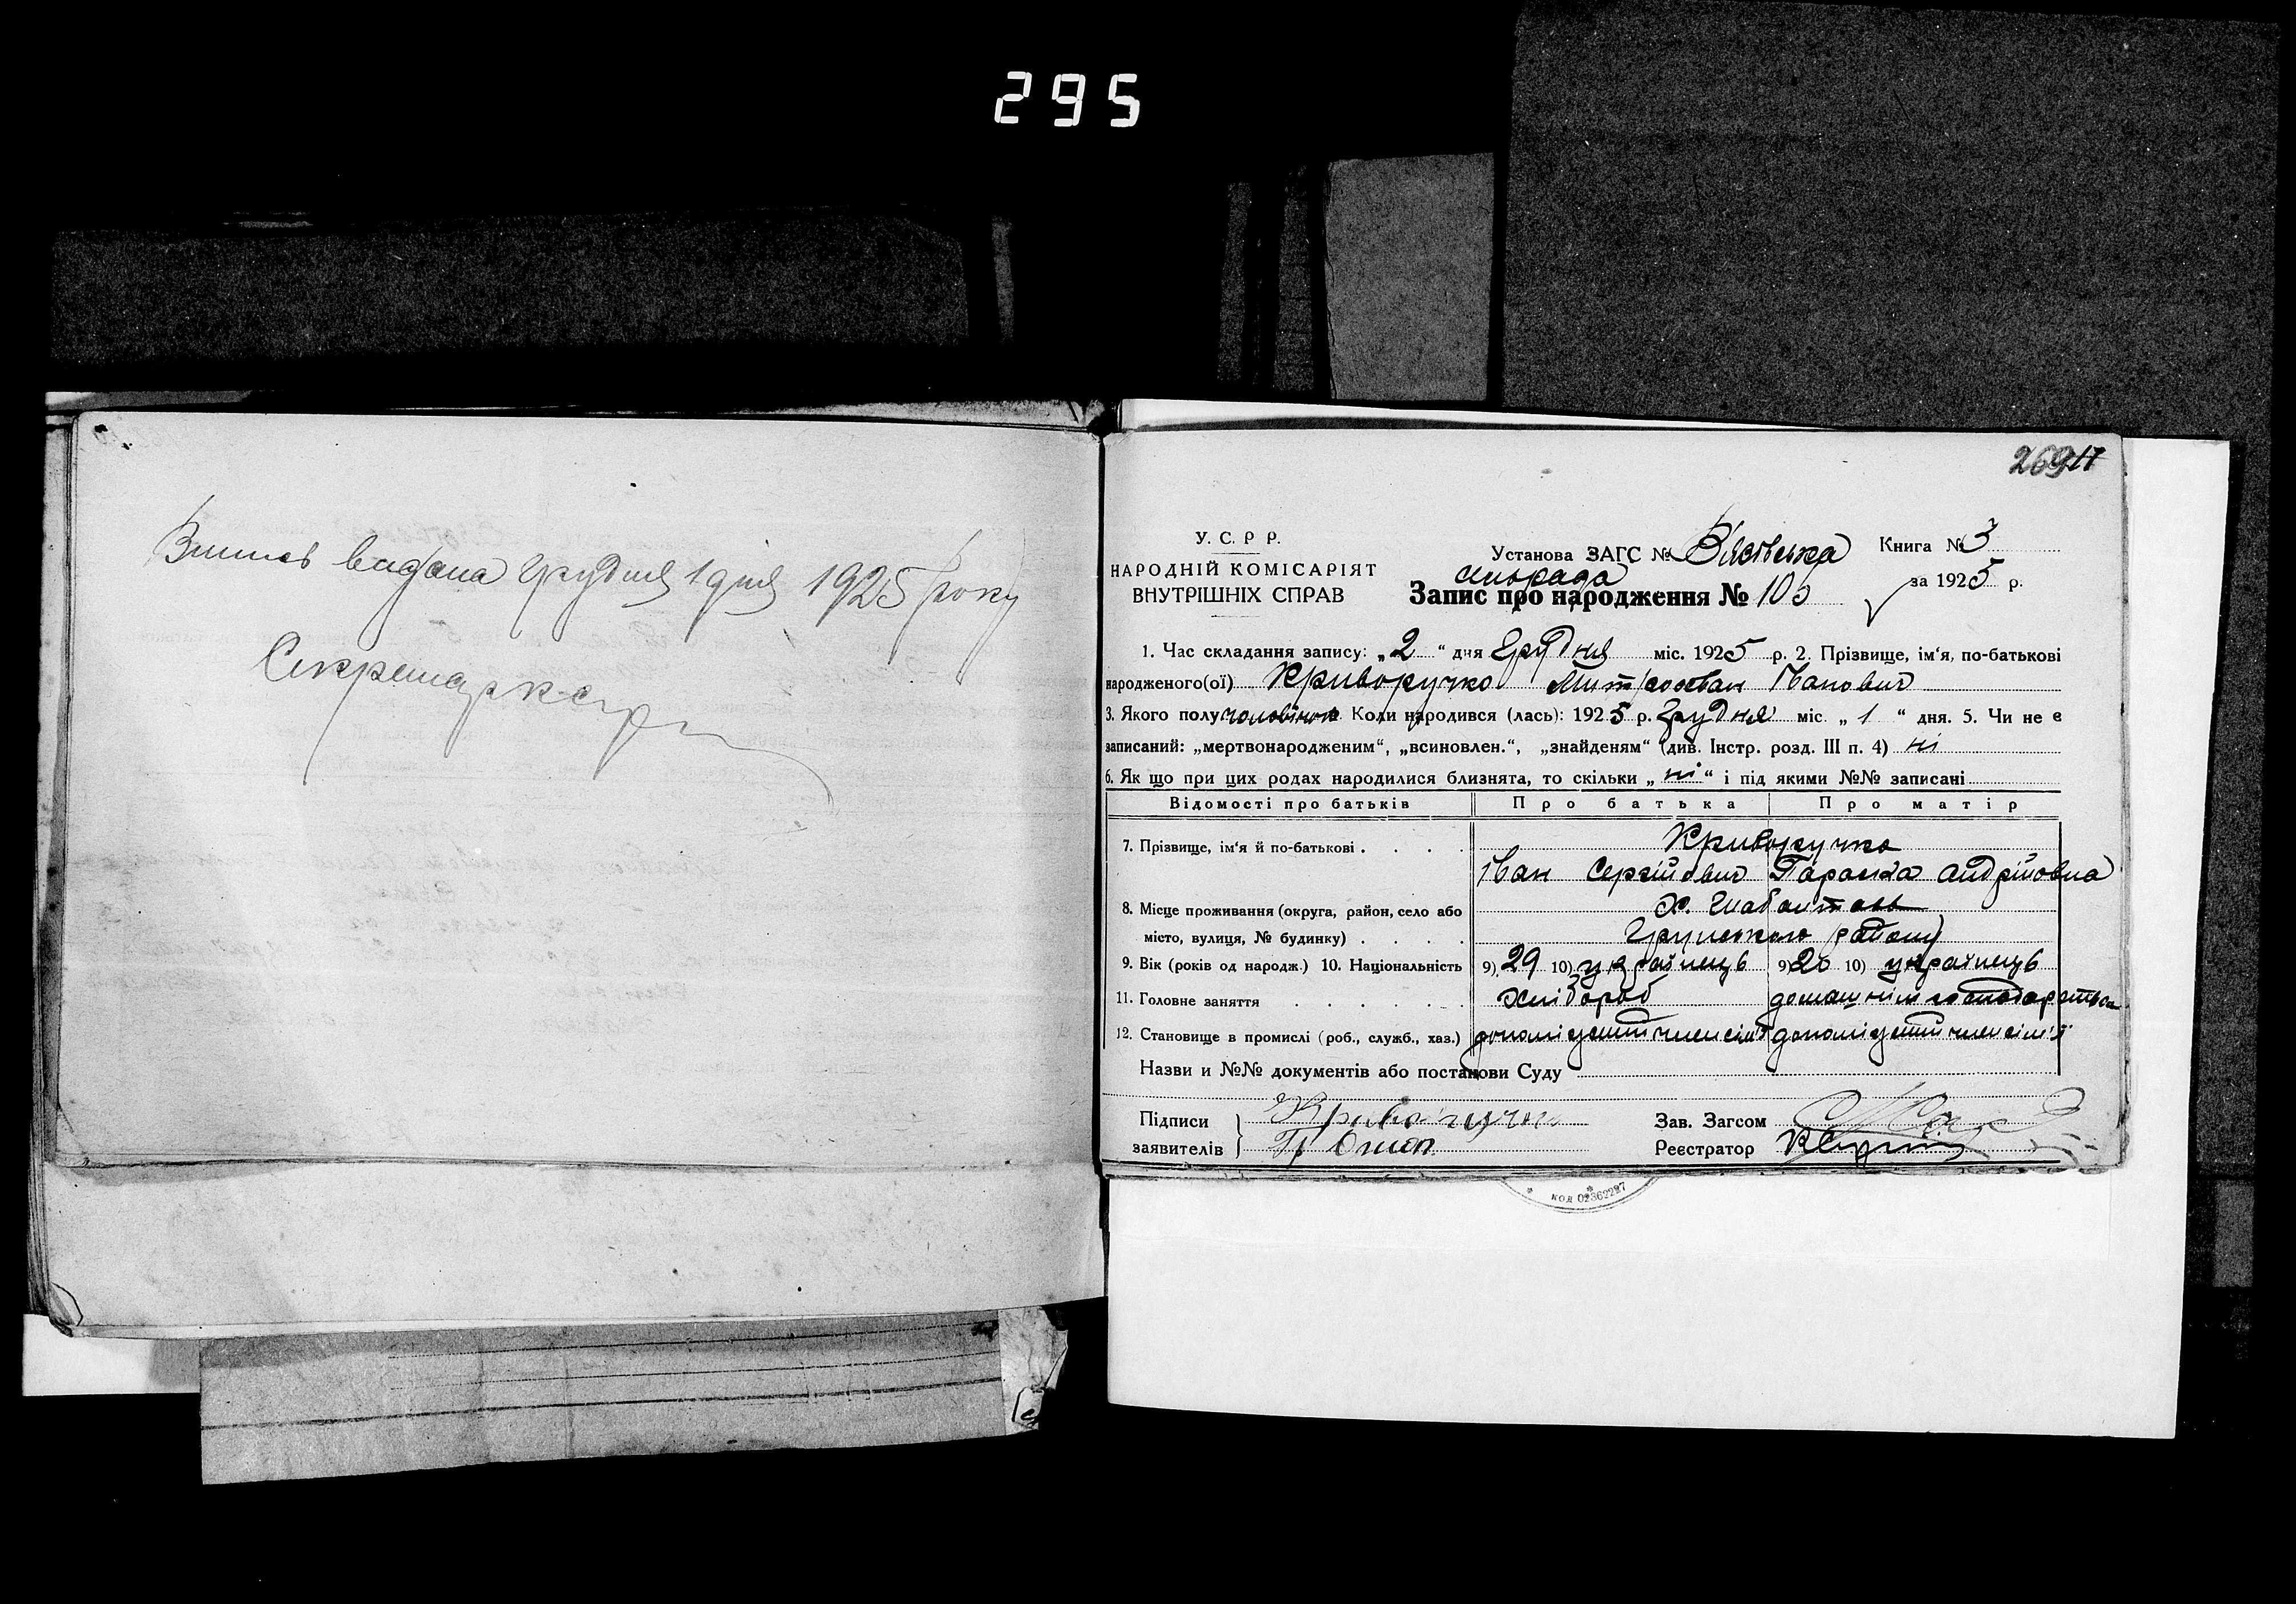 295
Виписъ видана Грудня 1 дня 1925 року
Секретар
269
У. С. Р Р.
НАРОДНІЙ КОМІСАРІЯТ
ВНУТРІШНІХ СПРАВ
Установа ЗАГС №
Книга № 3
сільрада
за 1925 р.
Запис про народження № 105
1. Час складання запису: „2“ дня Грудня міс. 1925 р. 2. Прізвище, ім‘я, по-батькові
народженого(ої) Криворучко Митрофан Іванович
3. Якого полу чоловічого Коли народився (лась): 1925 р. Грудня міс. „1“ дня. 5. Чи не є
записаний: „мертвонародженим“, „всиновлен.“, „знайденям“ (див. Інстр. розд. III п. 4) ні
6. Як що при цих родах народилися близнята, то скільки „ні“ і під якими №№ записані
Відомості про батьків Про батька Про матір
7. Прізвище, ім‘я й по-батькові . . . . Криворучко
Іван Сергійович Параска Андрійовна
8. Місце проживання (округа, район, село або х.
місто, вулиця, № будинку) . . . . Грунського району
9. Вік (років од народж.) 10. Національність 9) 29 10) українець 9) 26 10) українець
11. Головне заняття . . . . . . хлібороб домашнім господарством
12. Становище в промислі (роб., служб., хаз.) допоміжний член сім'ї допоміжний член сім'ї
Назви и №№ документів або постанови Суду
Підписи Криворучко Зав. Загсом
заявителів Реєстратор
* код 02362297 *